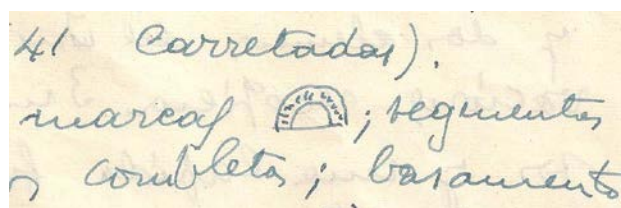 41 Carretadas).
marcas ; segmentos
completos; basamento